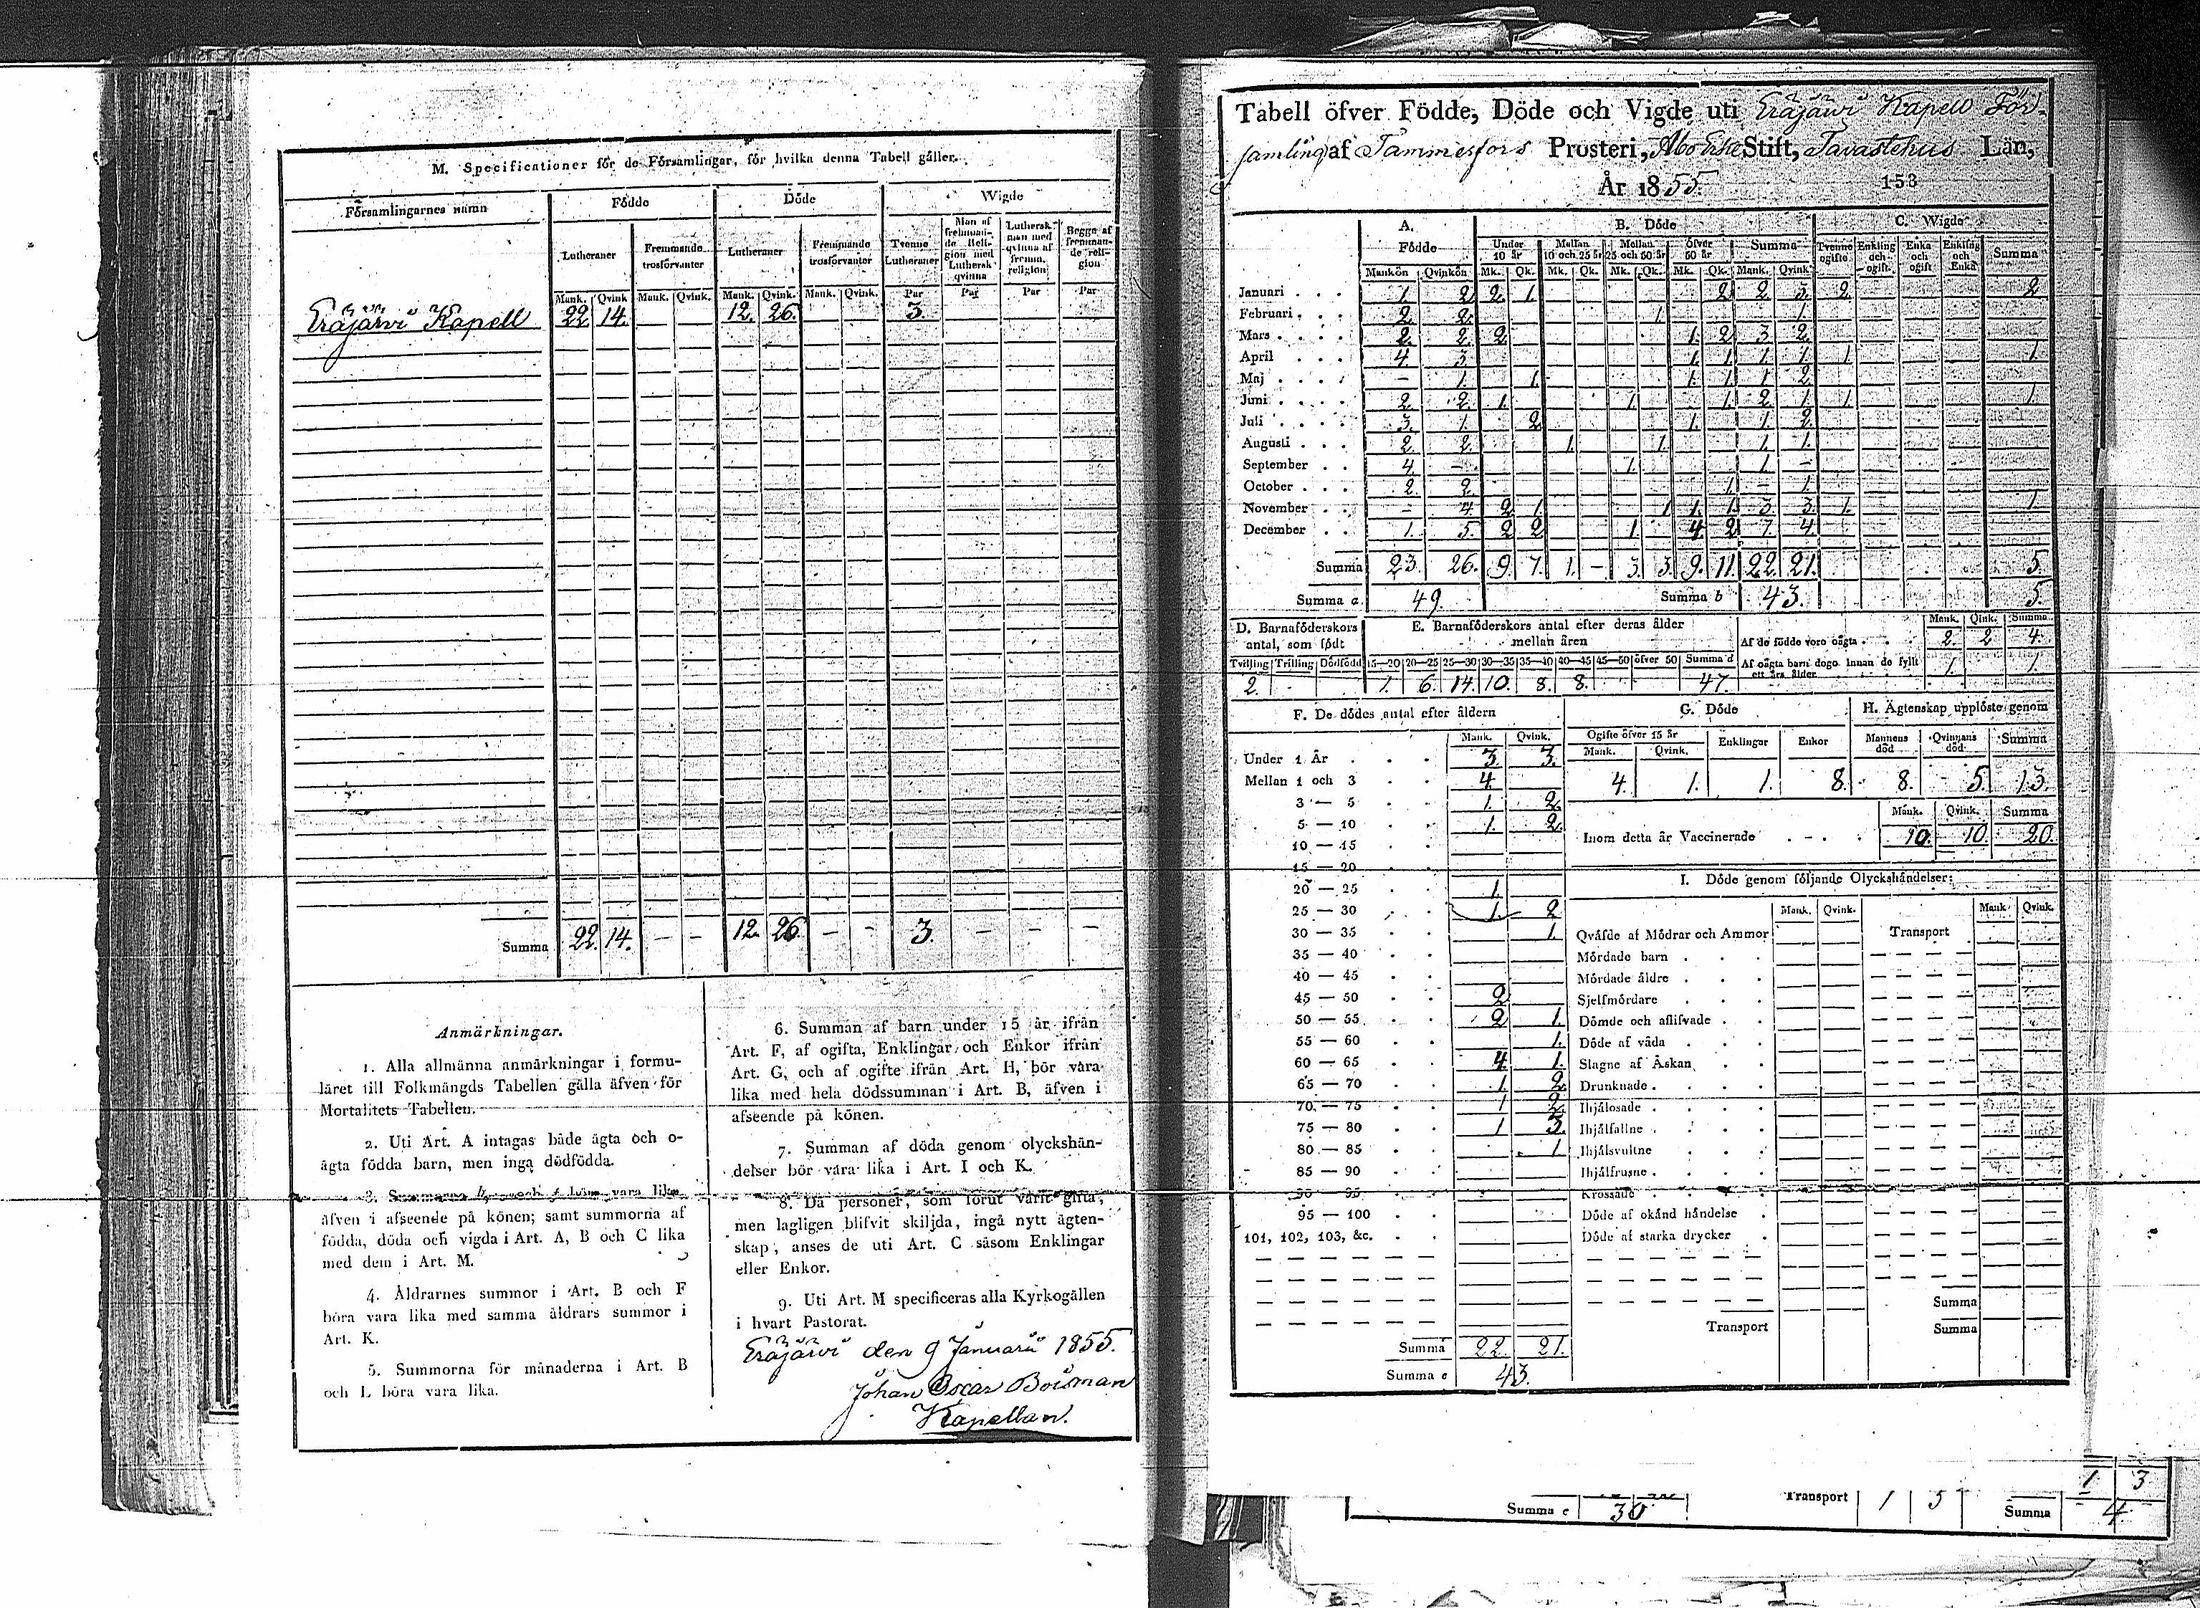 M. Specificationer för de Församlingar, för hvilka denna Tabell gäller.
Församlingarnes namn Födde Döde Wigde
Lutheraner Fremmande trosförvanter Lutheraner Fremmande trosförvanter Tvenne Lutheraner Man af fremmande Religion med Luthersk qvinna Luthersk man med qvinna af fremm. religion Begge af fremmande religion
Mank. Qvink Mank. Qvink. Mank. Qvink. Mank. Qvink. Par Par Par Par
Eräjärvi Kapell 22 14. 12. 26. 3.
Summa 22. 14. — — 12. 26 — — 3. — — —
Anmärkningar.
1. Alla allmänna anmärkningar i formu-
läret till Folkmängds Tabellen gälla äfven för
Mortalitets Tabellen.
2. Uti Art. A intagas både ägta och o-
ägta födda barn, men inga dödfödda.
3. Summorna b, och vara lika
äfven i afseende på könen; samt summorna af
födda, döda och vigda i Art. A, B och C lika
med dem i Art. M.
4. Åldrarnes summor i Art. B och F
böra vara lika med samma åldrars summor i
Art. K.
5. Summorna för månaderna i Art. B
och L böra vara lika.
6. Summan af barn under 15 år ifrån
Art. F, af ogifta, Enklingar och Enkor ifrån
Art. G, och af ogifte ifrån Art. H, bör vara
lika med hela dödssumman i Art. B, äfven i
afseende på könen.
7. Summan af döda genom olyckshän-
delser bör vara lika i Art. I och K.
8. Då personer, som förut varit gifta,
men lagligen blifvit skiljda, ingå nytt ägten-
skap, anses de uti Art. C såsom Enklingar
eller Enkor.
9. Uti Art. M specificeras alla Kyrkogällen
i hvart Pastorat.
Eräjärvi den 9 Januarii 1855.
Johan Oscar Boisman
Kapellan.
Tabell öfver Födde, Döde och Vigde uti Eräjärvi Kapell För-
samling af Tammerfors Prosteri, Åbo Erke Stift, Tavastehus Län,
År 1855. 153
A. Födde B. Döde C. Wigde
Under 10 år Mellan 10 och 25 år Mellan 25 och 50 år Öfver 50 år Summa Tvenne ogifte Enkling och ogift. Enka och ogift Enkling och Enka Summa
Mankön Qvinkön Mk. Qk. Mk. Qk. Mk. Qk. Mk. Qk. Mank. Qvink
Januari 1. 2 2. 1. 2 2. 3. 2. 2
Februari 2. 2. 1. 1.
Mars 2. 2. 2 1. 2 3 2.
April 4. 3. 1. 1. 1. 1 1. 1.
Maj — 1. 1. 1. 1. 1 2
Juni 2 2. 1. 1. 1. 2 1. 1. 1.
Juli 3. 1. 2 1. 1. 2.
Augusti 2. 2. 1. 1. 1. 1.
September 4. — 1. 1 —
October 2. 2. 1 — 1.
November — 4 2. 1. 1 1. 1. 3 3. 1. 1.
December 1. 5. 2 2 1. 4 2 7. 4.
Summa 23. 26. 9. 7. 1. — 3. 3. 9. 11. 22. 21. 5.
Summa a 49. Summa b 43. 5.
D. Barnaföderskors antal, som födt
Tvilling Trilling Dödfödd
2. - -
E. Barnaföderskors antal efter deras ålder mellan åren
15—20 20—25 25—30 30—35 35—40 40—45 45—50 öfver 50 Summa d
1. 6. 14. 10. 8. 8. 47.
Mank. Qink. Summa
Af de födde voro oägta 2. 2 4.
Af oägta barn dogo innan de fyllt ett års ålder 1. 1.
F. De dödes antal efter åldern
Mank. Qvink.
Under 1 År 3 3.
Mellan 1 och 3 4.
3 — 5 1. 2.
5 — 10 1. 2
10 — 15
15 — 20
20 — 25 1.
25 — 30 1. 2
30 — 35 1.
35 — 40
40 — 45
45 — 50 2
50 — 55 2 1.
55 — 60 1.
60 — 65 4. 1.
65 — 70 1. 2.
70 — 75 1 2.
75 — 80 1 3.
80 — 85 1
85 — 90
90 — 95
95 — 100
101, 102, 103, &c.
Summa 22. 21.
Summa e 43.
G. Döde
Ogifte öfver 15 år Enklingar Enkor
Mank. Qvink.
4. 1. 1. 8.
H. Ägtenskap upplöste genom
Mannens död Qvinnans död Summa
8. 5. 13.
Mank. Qvink. Summa
Inom detta år Vaccinerade 10. 10. 20.
I. Döde genom följande Olyckshändelser:
Mank. Qvink. Mank. Qvink.
Qväfde af Mödrar och Ammor Transport
Mördade barn
Mördade äldre
Sjelfmördare
Dömde och aflifvade
Döde af våda
Slagne af Åskan
Drunknade
Ihjälosade
Ihjälfallne
Ihjälsvultne
Ihjälfrusne
Krossade
Döde af okänd händelse
Döde af starka drycker
Summa
Transport Summa
1. 3
Summa e 30 Transport 1 5 Summa 4.